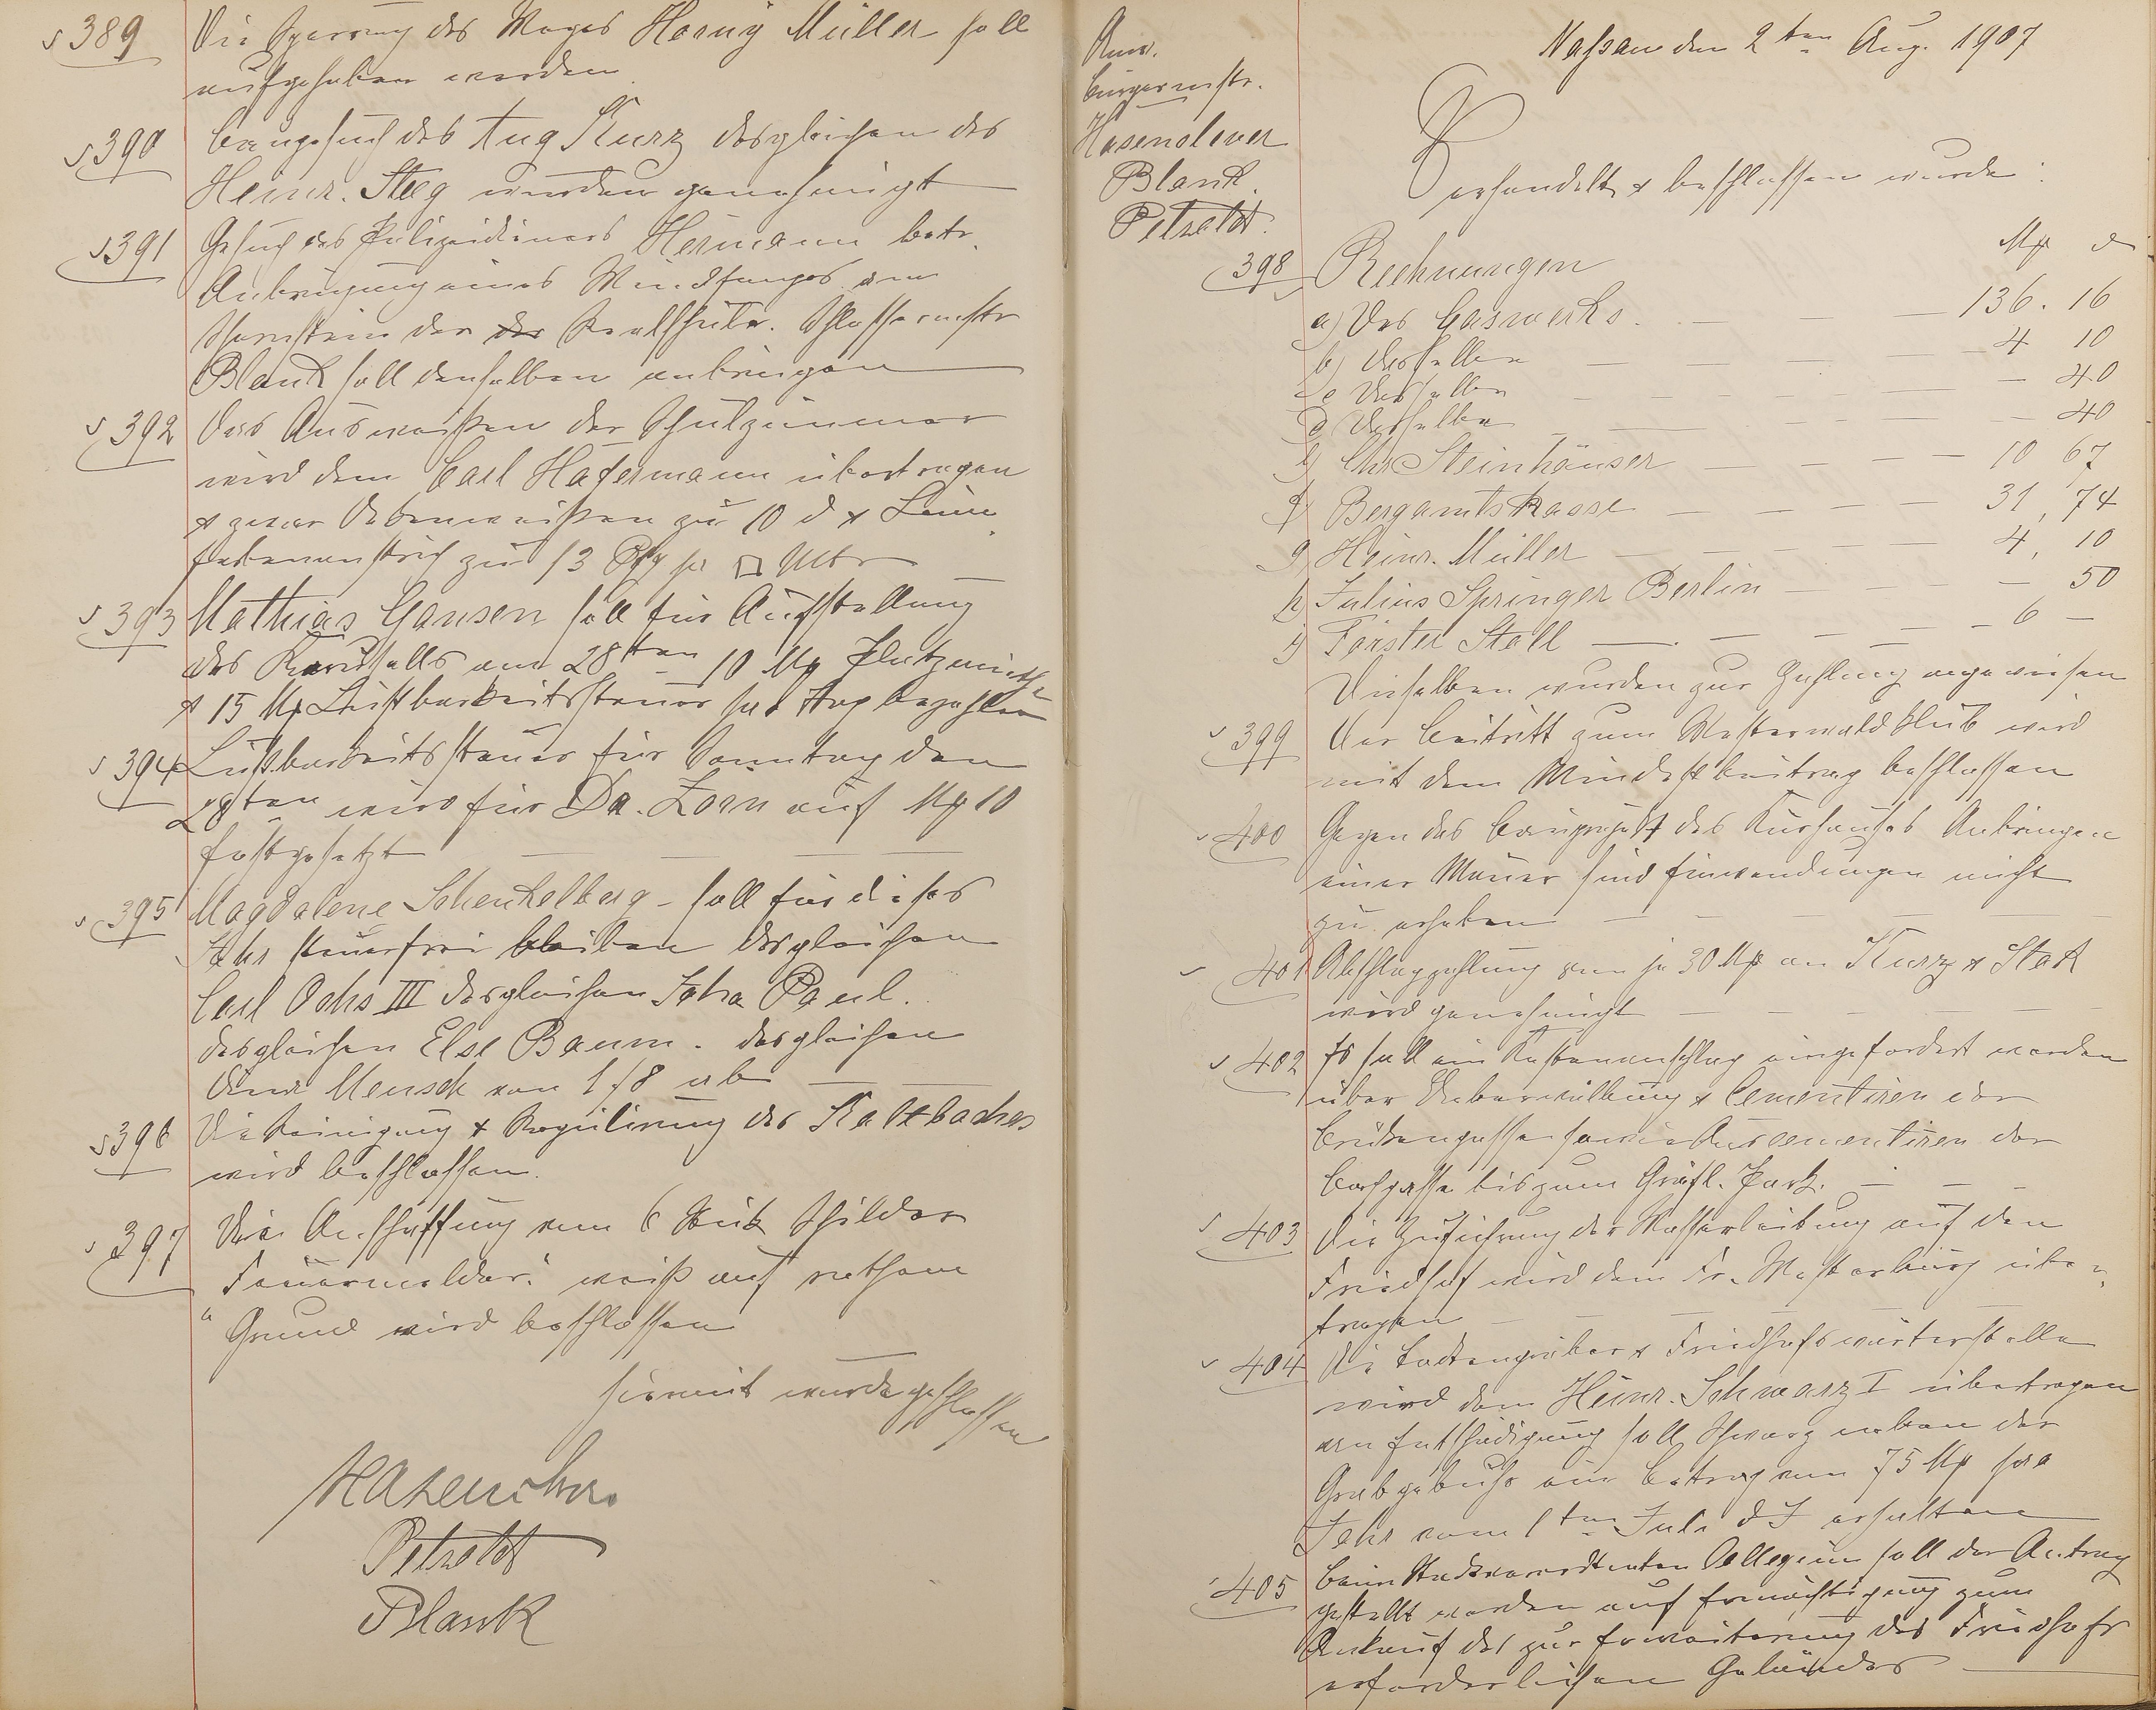 § 389 Die Sperrung des Weges Hornig Müller soll
aufgehoben werden
§ 390 Baugesuch des Aug Kurz desgleichen des
Heinr. Steeg wurden genehmigt
§ 391 Gesuch des Polizeidieners Hermann betr.
Anbringung eines Windfanges am
Schornstein der der Realschule. Schlossermstr
Blank soll denselben anbringen
§ 392 Das Ausweißen der Schulzimmer
wird dem Carl Hafermann übertragen
& zwar Deckenweißen zu 10 d & Leim
farbenanstrich zu 13 Pfg pr □ Mtr
§ 393 Mathias Gansen soll für Aufstellung
des Karussells am 28ten 10 Mk Platzmiethe
& 15 Mk Lustbarkeitssteuer pro Tag bezahlen
§ 394 Lustbarkeitssteuer für Sonntag den
28ten wird für Dr. Zorn auf Mk 10
festgesetzt
§ 395 Magdalene Schenkelberg - soll für dieses
Jahr steuerfrei bleiben desgleichen
Carl Ochs III desgleichen Joha Paul.
desgleichen Else Baum. desgleichen
Mensch vom 1/8 ab
§ 396 Die Reinigung & Regulirung des Kaltbaches
wird beschlossen.
§ 397 Die Anschaffung von 6 Stück Schilder
"Feuermelder" weiß auf rothem
Grund wird beschlossen
hiermit wurde geschlossen
Hasenclever
Petzoldt
Blank
Anw.
Bürgermstr.
Hasenclever
Blank.
Petzoldt.
Nassau den 2ten Aug. 1907
Verhandelt & beschlossen wurde:
398 Rechnungen Mk d
a) Des Gaswerks. 136. 16
b) Desselben 4 10
c) Desselben - 40
d) Desselben - 40
e) Chr Steinhäuser 10 67
f) Bergamtskasse 31, 74
g) Heinr. Müller 4, 10
h) Julius Springer Berlin - 50
i) Förster Stoll 6 -
Dieselben wurden zur Zahlung angewiesen
§ 399 Der Beitritt zum Westerwaldklub wird
mit dem Mindestbeitrag beschlossen
§ 400 Gegen das Bauprojekt des Kurhauses Anbringen
einer Mauer sind Einwendungen nicht
zu erheben
§ 401 Abschlagzahlung von je 30 Mk an Kurz & Stak
wird genehmigt
§ 402 Es soll ein Kostenanschlag eingefordert werden
über Ueberwölbung & Cementiren der
Brückengasse sowie Auscementiren der
Bachgasse bis zum Gräfl. Park.
§ 403 Die Zuführung der Wasserleitung auf den
Friedhof wird dem Fr. Westerburg über-
tragen
§ 404 Die Todtengräber & Friedhofswärterstelle
wird dem Heinr. Schwarz I übertragen
an Entschädigung soll Schwarz neben der
Grabgebühr ein Betrag von 75 Mk pro
Jahr vom 1ten Juli d J erhalten
§ 405 Beim Stadtverordneten Collegium soll der Antrag
gestellt werden auf Ermächtigung zum
Ankauf des zur Erweiterung des Friedhofs
erforderlichen Geländes